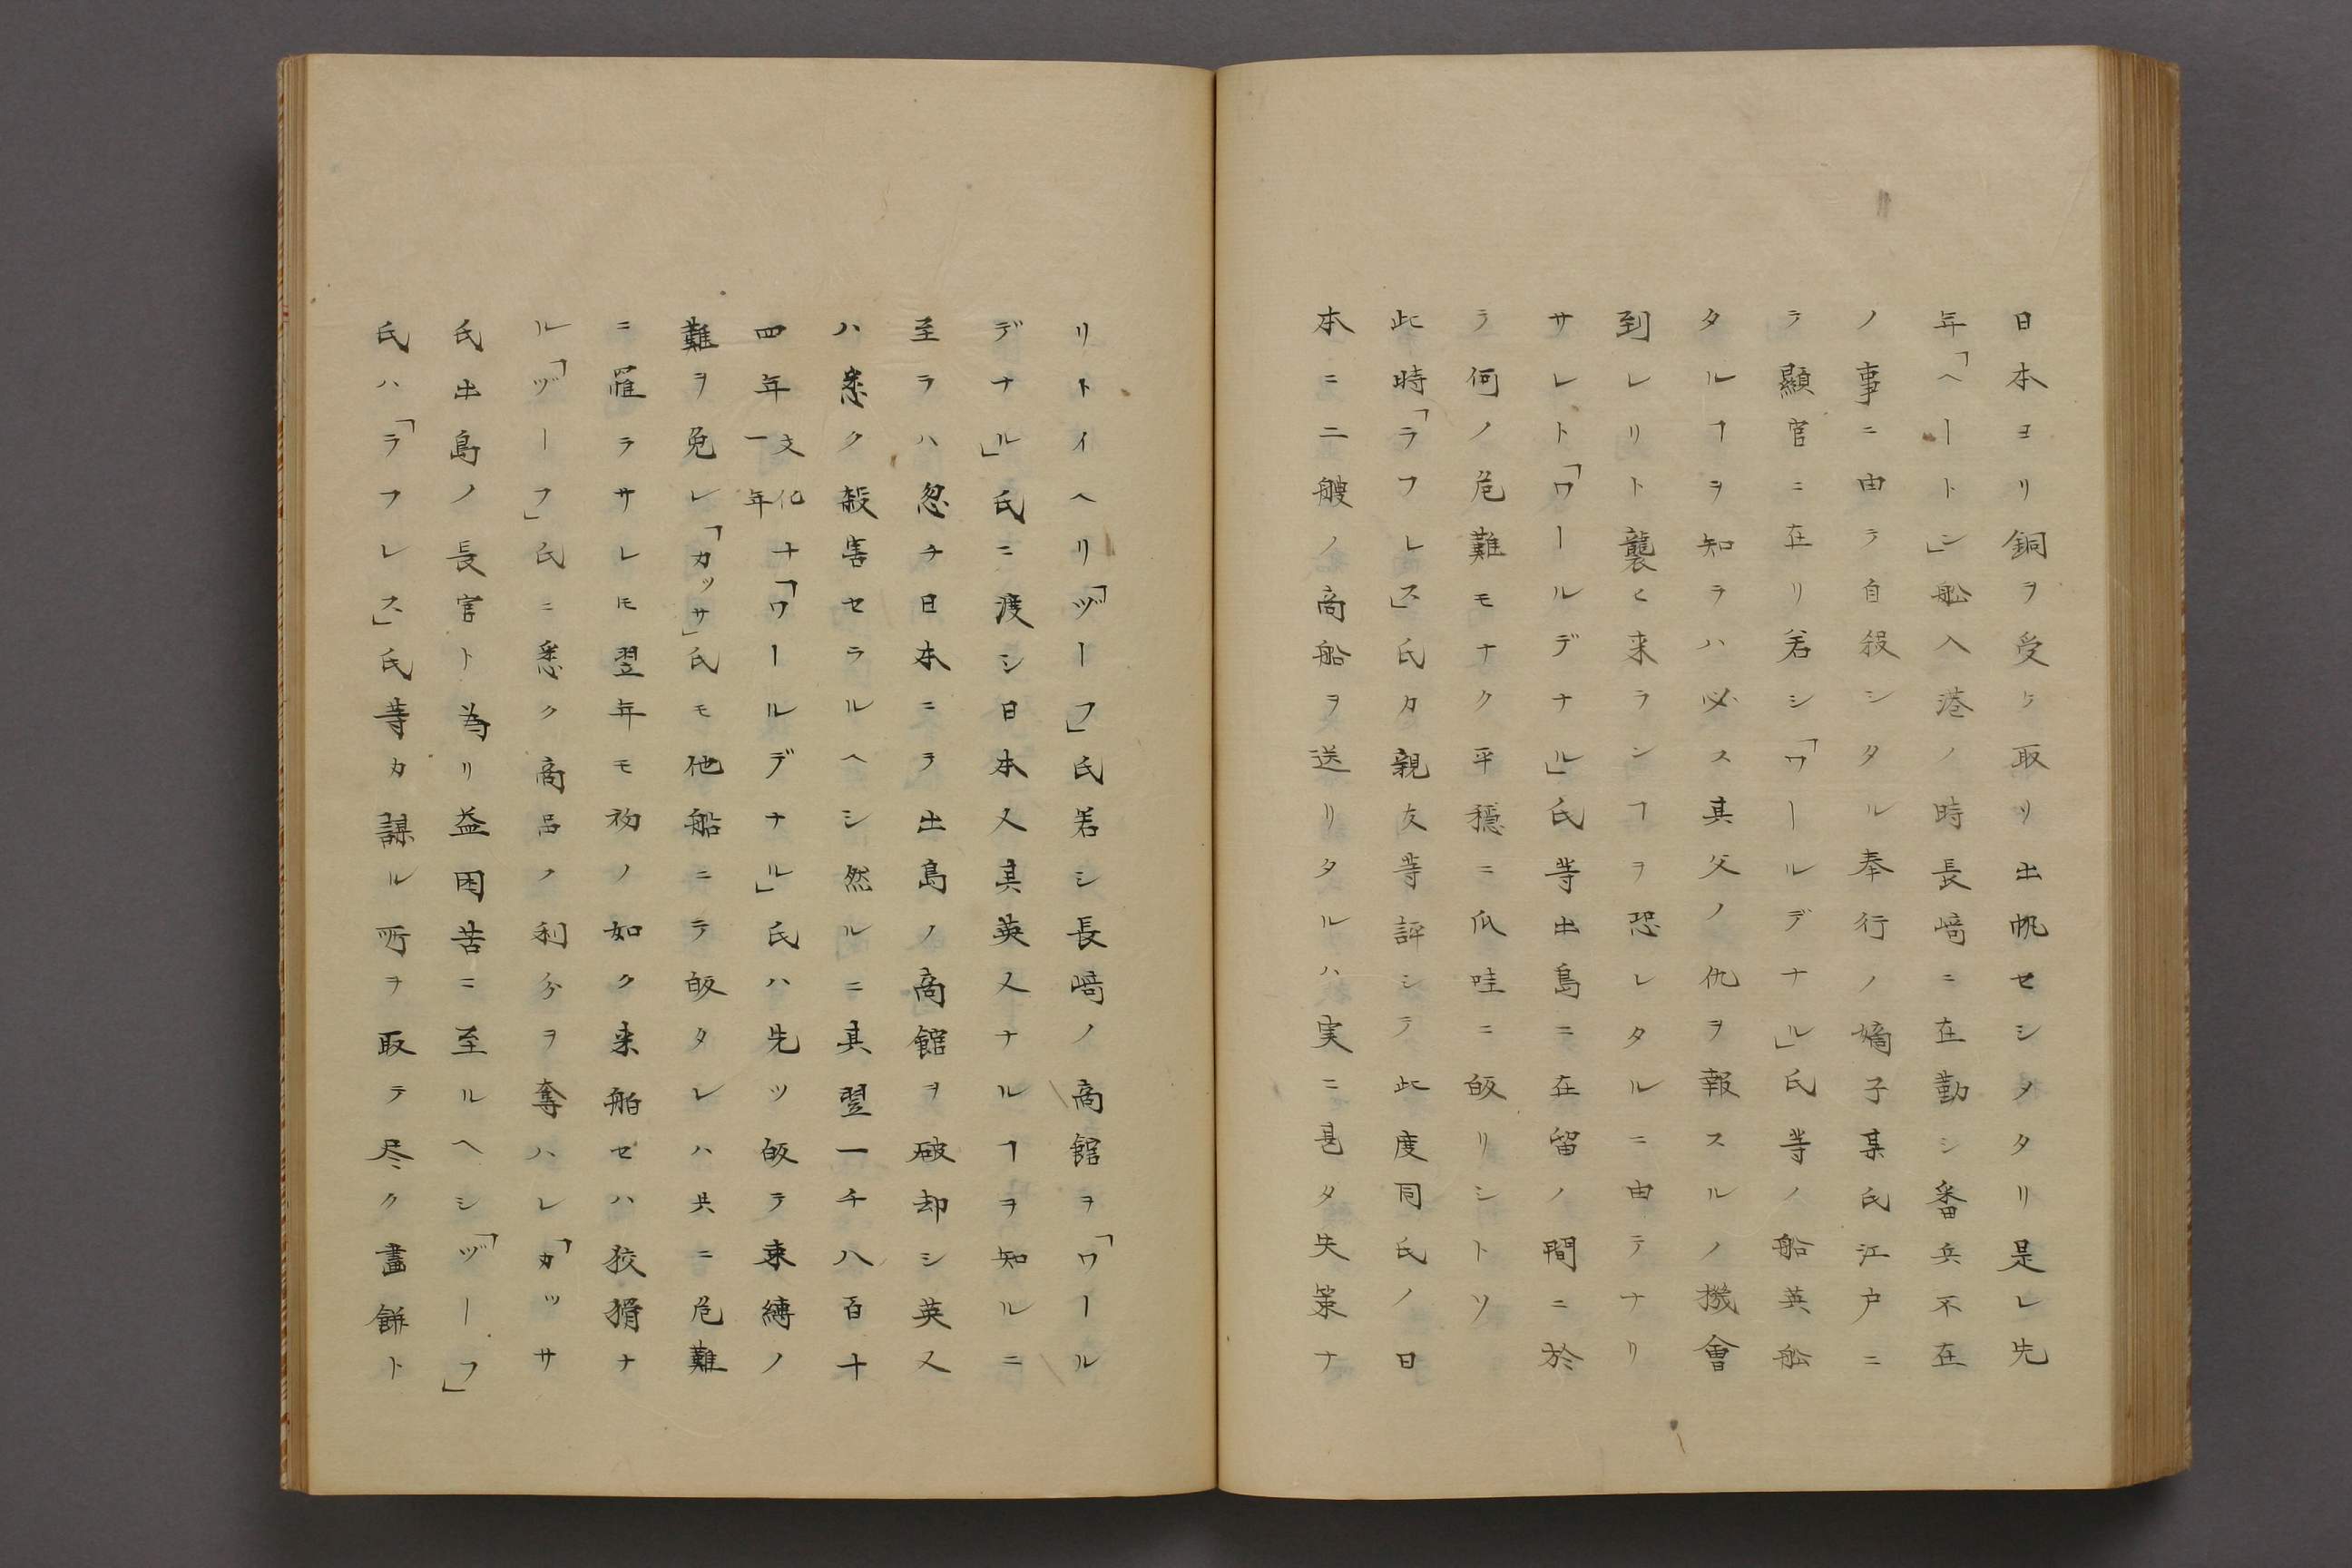 日本ヨリ銅ヲ受ケ取リ出帆セシメタリ是レ先
年「ヘートン」舩入港ノ時長﨑ニ在勤シ番兵不在
ノ事ニ由テ自殺シタル奉行ノ嫡子某氏江户ニ
テ顯官ニ在リ若シ「ワールデナル」氏等ノ船英舩
タルヿヲ知ラハ必ス其父ノ仇ヲ報スルノ機會
到レリト襲ヒ来ランヿヲ恐レタルニ由テナリ
サレト「ワールデナル」氏等出島ニ在留ノ間ニ於
テ何ノ危難モナク平穏ニ爪哇ニ皈リシトソ
此時「ラフレス」氏カ親友等評シテ此度同氏ノ日
本ニ二艘ノ商船ヲ送リタルハ実ニ甚タ失策ナ
リトイヘリ「ヅーフ」氏若シ長﨑ノ商館ヲ「ワール
デナル」氏ニ渡シ日本人其英人ナルヿヲ知ルニ
至ラハ忽チ日本ニテ出島ノ商館ヲ破却シ英人
ハ悉ク殺害セラルヘシ然ルニ其翌一千八百十
四年文化十一年「ワールデナル」氏ハ先ツ皈テ束縛ノ
難ヲ免レ「カッサ」氏モ他船ニテ皈タレハ共ニ危難
ニ罹ラサレㇳモ翌年モ初ノ如ク来舶セハ狡猾ナ
ル「ヅーフ」氏ニ悉ク商品ノ利分ヲ奪ハレ「カッサ
氏出島ノ長官ト為リ益困苦ニ至ルヘシ「ヅーフ」
氏ハ「ラフレス」氏等カ謀ル所ヲ取テ尽ク畫餅ト